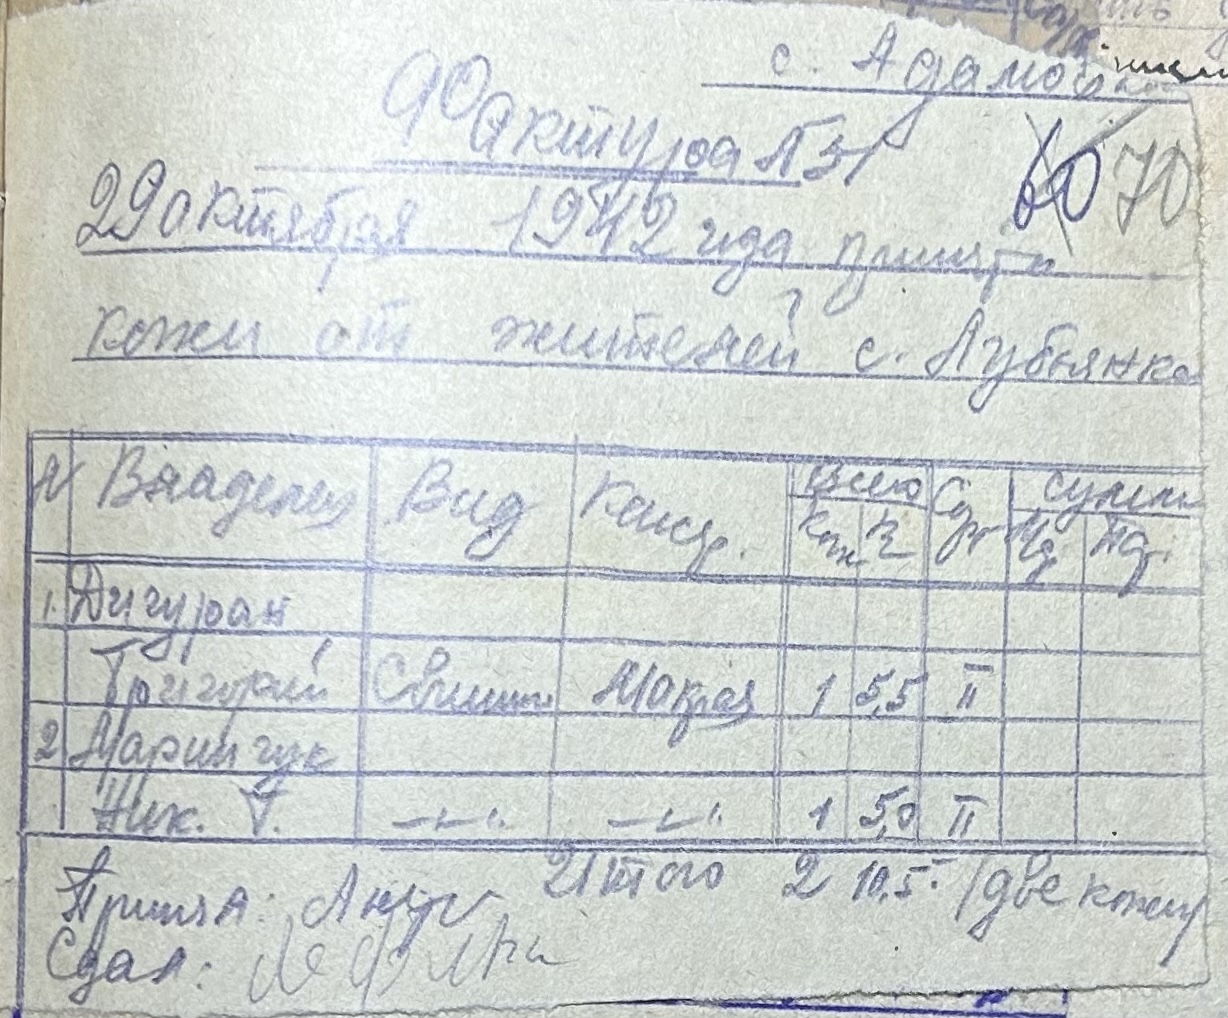 с. Адамов
Фактура №31
60 70
29 октября 1942 года принято
кожи от жителей с. Лубянка
№ Владелец Вид Конс. Всего Сорт сумма
кож к
1. Дигуран
Григорий Свиная Мокрая 1 5,5 II
2 Маринчук
Ник. Т. -"- -"- 1 5,0 II
Итого 2 10,5. /две кожи/
Принял:
Сдал: